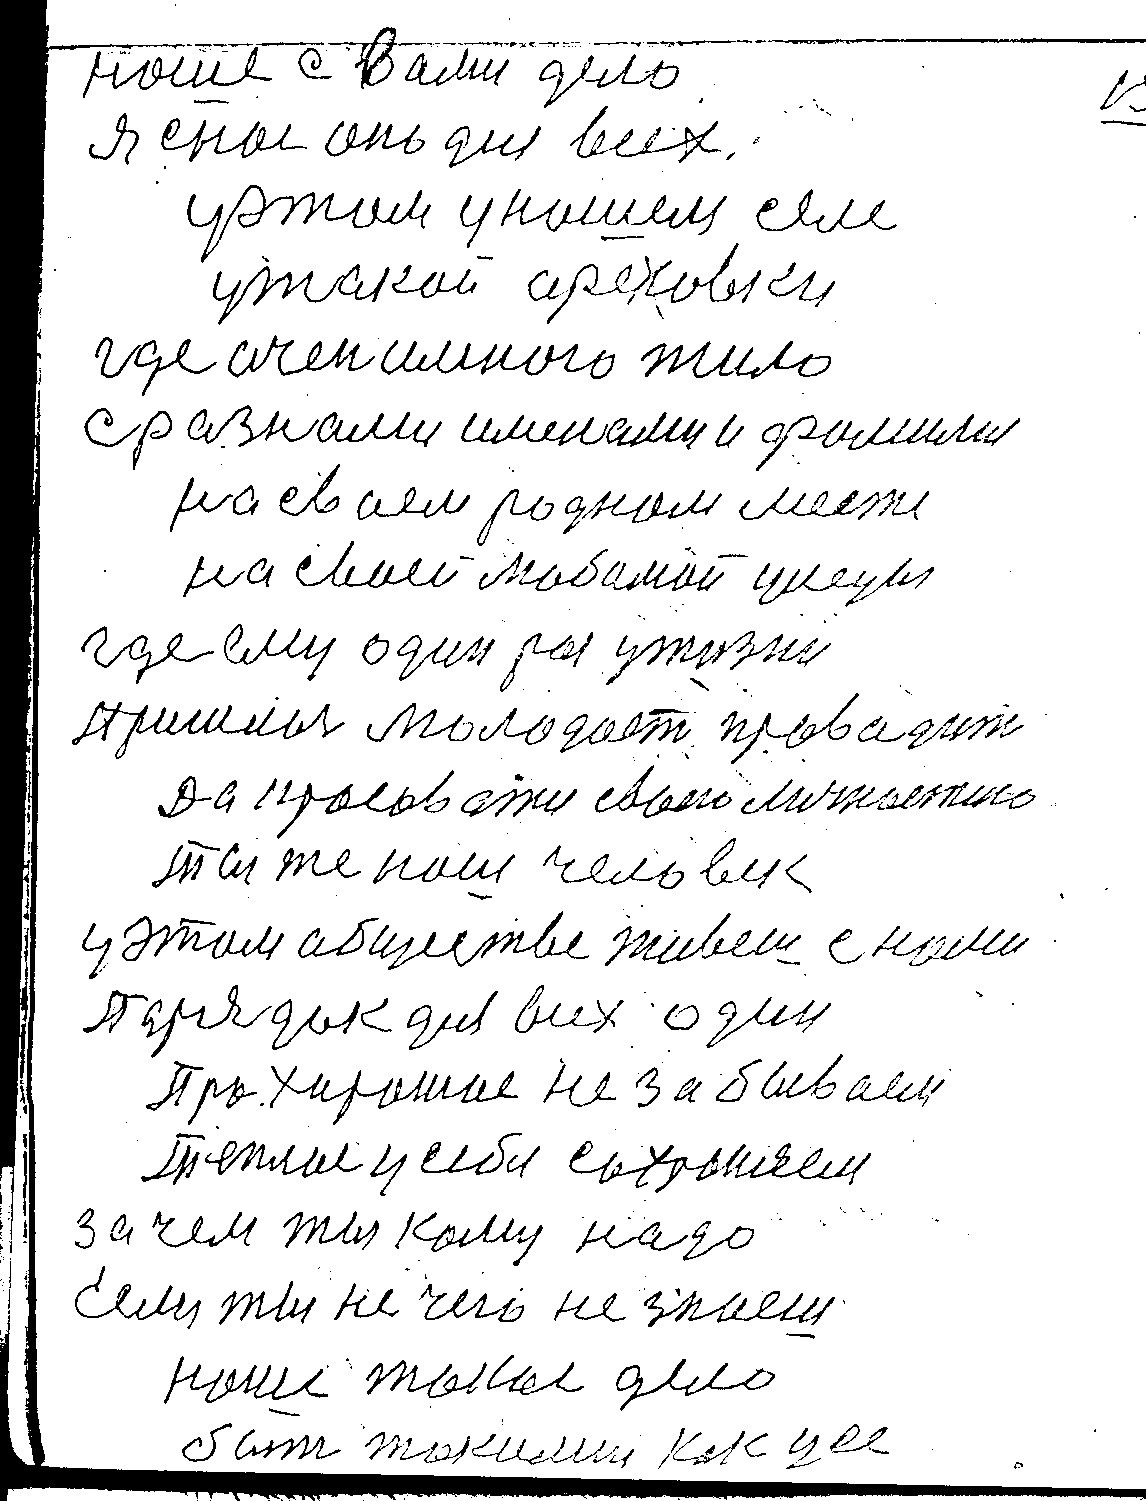 наше с Вами дело
Ясное оно для всех.
уэтом унашем селе
утакой ореховки
где очен имного жило
сразнами именами и фамили
на своем родном месте
на своей любамой улецы
где ему один раз ужизни
пришлос молодост провадит
Да просоважи своею личностию
Ты же наш человек
уэтом обществе живеш снами
Парядок для всех один
Про.харошое не забываем
Теплое усебя сохраняем
зачем ты кому надо
Если ты не чего не знаеш
наше такое дело
быт такими как усе